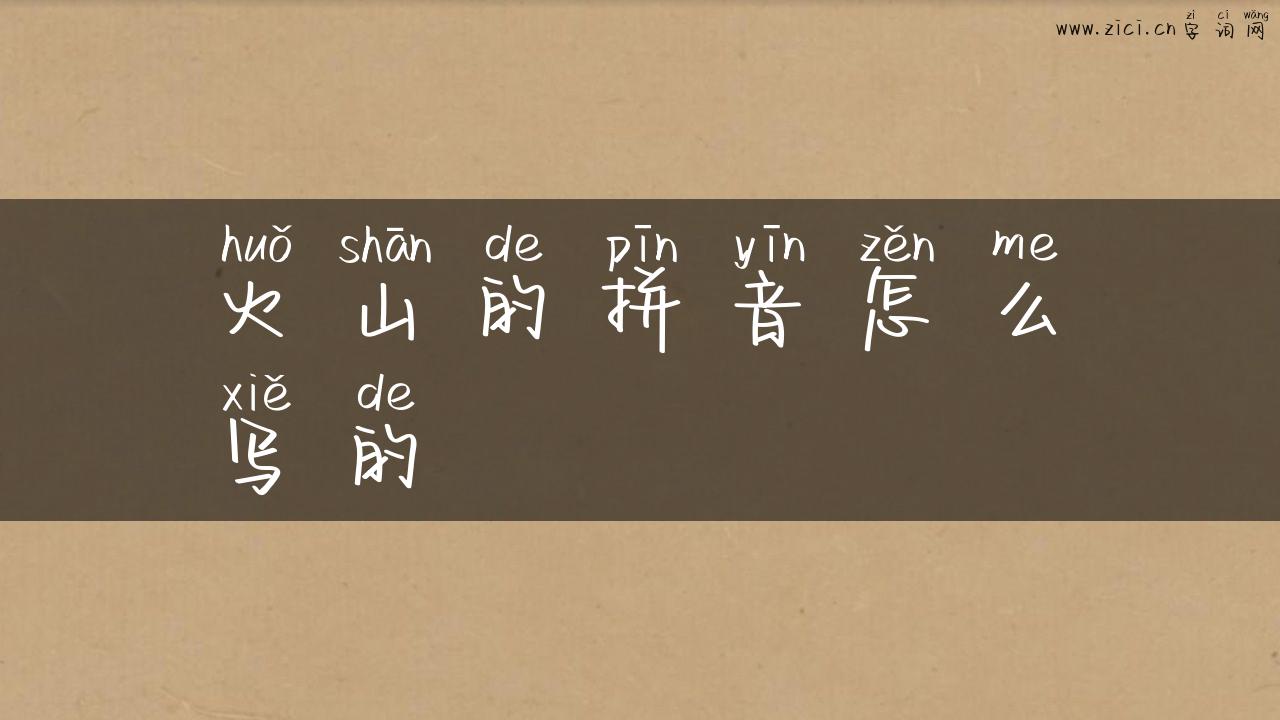 zì cí wǎng
www.zici.cn 字 词 网
huǒ shān de pīn yīn zěn me
火 山 的 拼 音 怎 么
xiě de
写 的